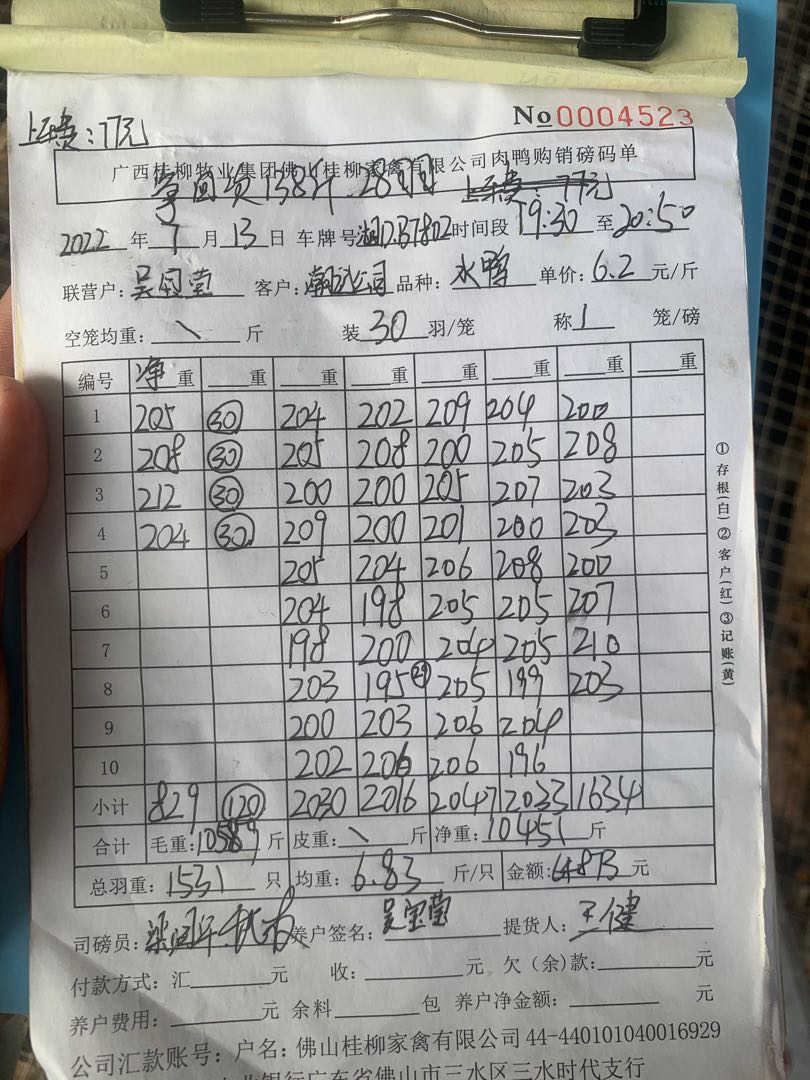 No 0004523
上车费:77元
广西桂柳牧业集团佛山桂柳家禽有限公司肉鸭购销磅码单
138斤 28 上车费:77元
2022年7月13日 车牌号湘D.B7802时间段19:30至20:50
联营户:吴宝莹 客户:公司 品种:水鸭 单价:6.2元/斤
空笼均重:\斤 装30羽/笼 称1笼/磅
编号 净重 重 重 重 重 重 重 重
1 205 30 204 202 209 204 200
2 208 30 205 208 200 205 208
3 212 30 200 200 205 207 203
4 204 30 209 200 201 200 203
5 205 204 206 208 200
6 204 198 205 205 207
7 198 200 204 205 210
8 203 195 29 205 199 203
9 200 203 206 204
10 202 206 206 196
小计 829 120 2030 2016 2047 2033 1634
合计 毛重:10589斤 皮重:\斤 净重:10451斤
总羽重:1531只 均重:6.83斤/只 金额:元
司磅员: 养户签名:吴宝莹 提货人:王健
付款方式:汇元 收:元 欠(余)款:元
养户费用:元 余料包 养户净金额:元
公司汇款账号:户名:佛山桂柳家禽有限公司 44-440101040016929
业银行广东省佛山市三水区三水时代支行
①存根(白)②客户(红)③记账(黄)